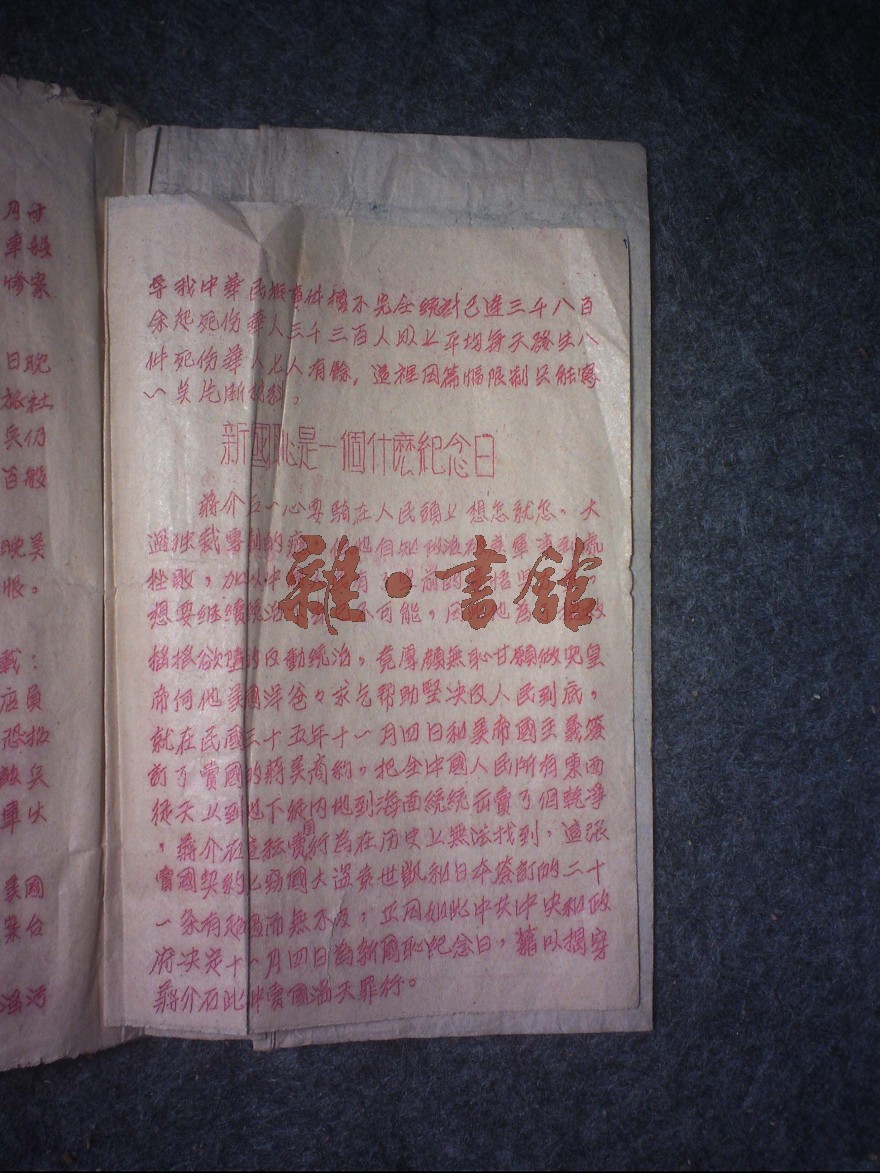 辱我中華民族事件據不完全統計已達三千八百
余起死伤華人三千三百人以上平均每天發生八
件死伤華人七人有餘，這裡因篇幅限制只能寫
一关片断材料。
新國恥是一個什麽紀念日
蔣介石一心要騎在人民頭上想怎就怎，大
過独裁專制的
挫敗，加以中
想要継續統治 不可能，因 他為
搖搖欲墮的反動統治，竟厚顔無恥甘願做児皇
帝何他美國洋爸々求乞帮助堅决反人民到底，
就在民國三十五年十一月四日和美帝國主義簽
訂了賣國的蔣美商約。把全中國人民所有東西
従天上到地下従内地到海面統統出賣了個乾净
，蔣介石這種賣國行為在历史上無法找到，這張
賣國契約比窃國大盗袁世凱和日本簽訂的二十
一条有超過而無不及，正因如此中共中央和政
府决定十一月四日為新國恥紀念日，藉以揭穿
蔣介石此种賣國滿天罪行。
雜·書館
月廿
車毀
惨案
日晚
旅社
兵仍
百般
晚美
恨。
載：
店員
兵
美國
案台